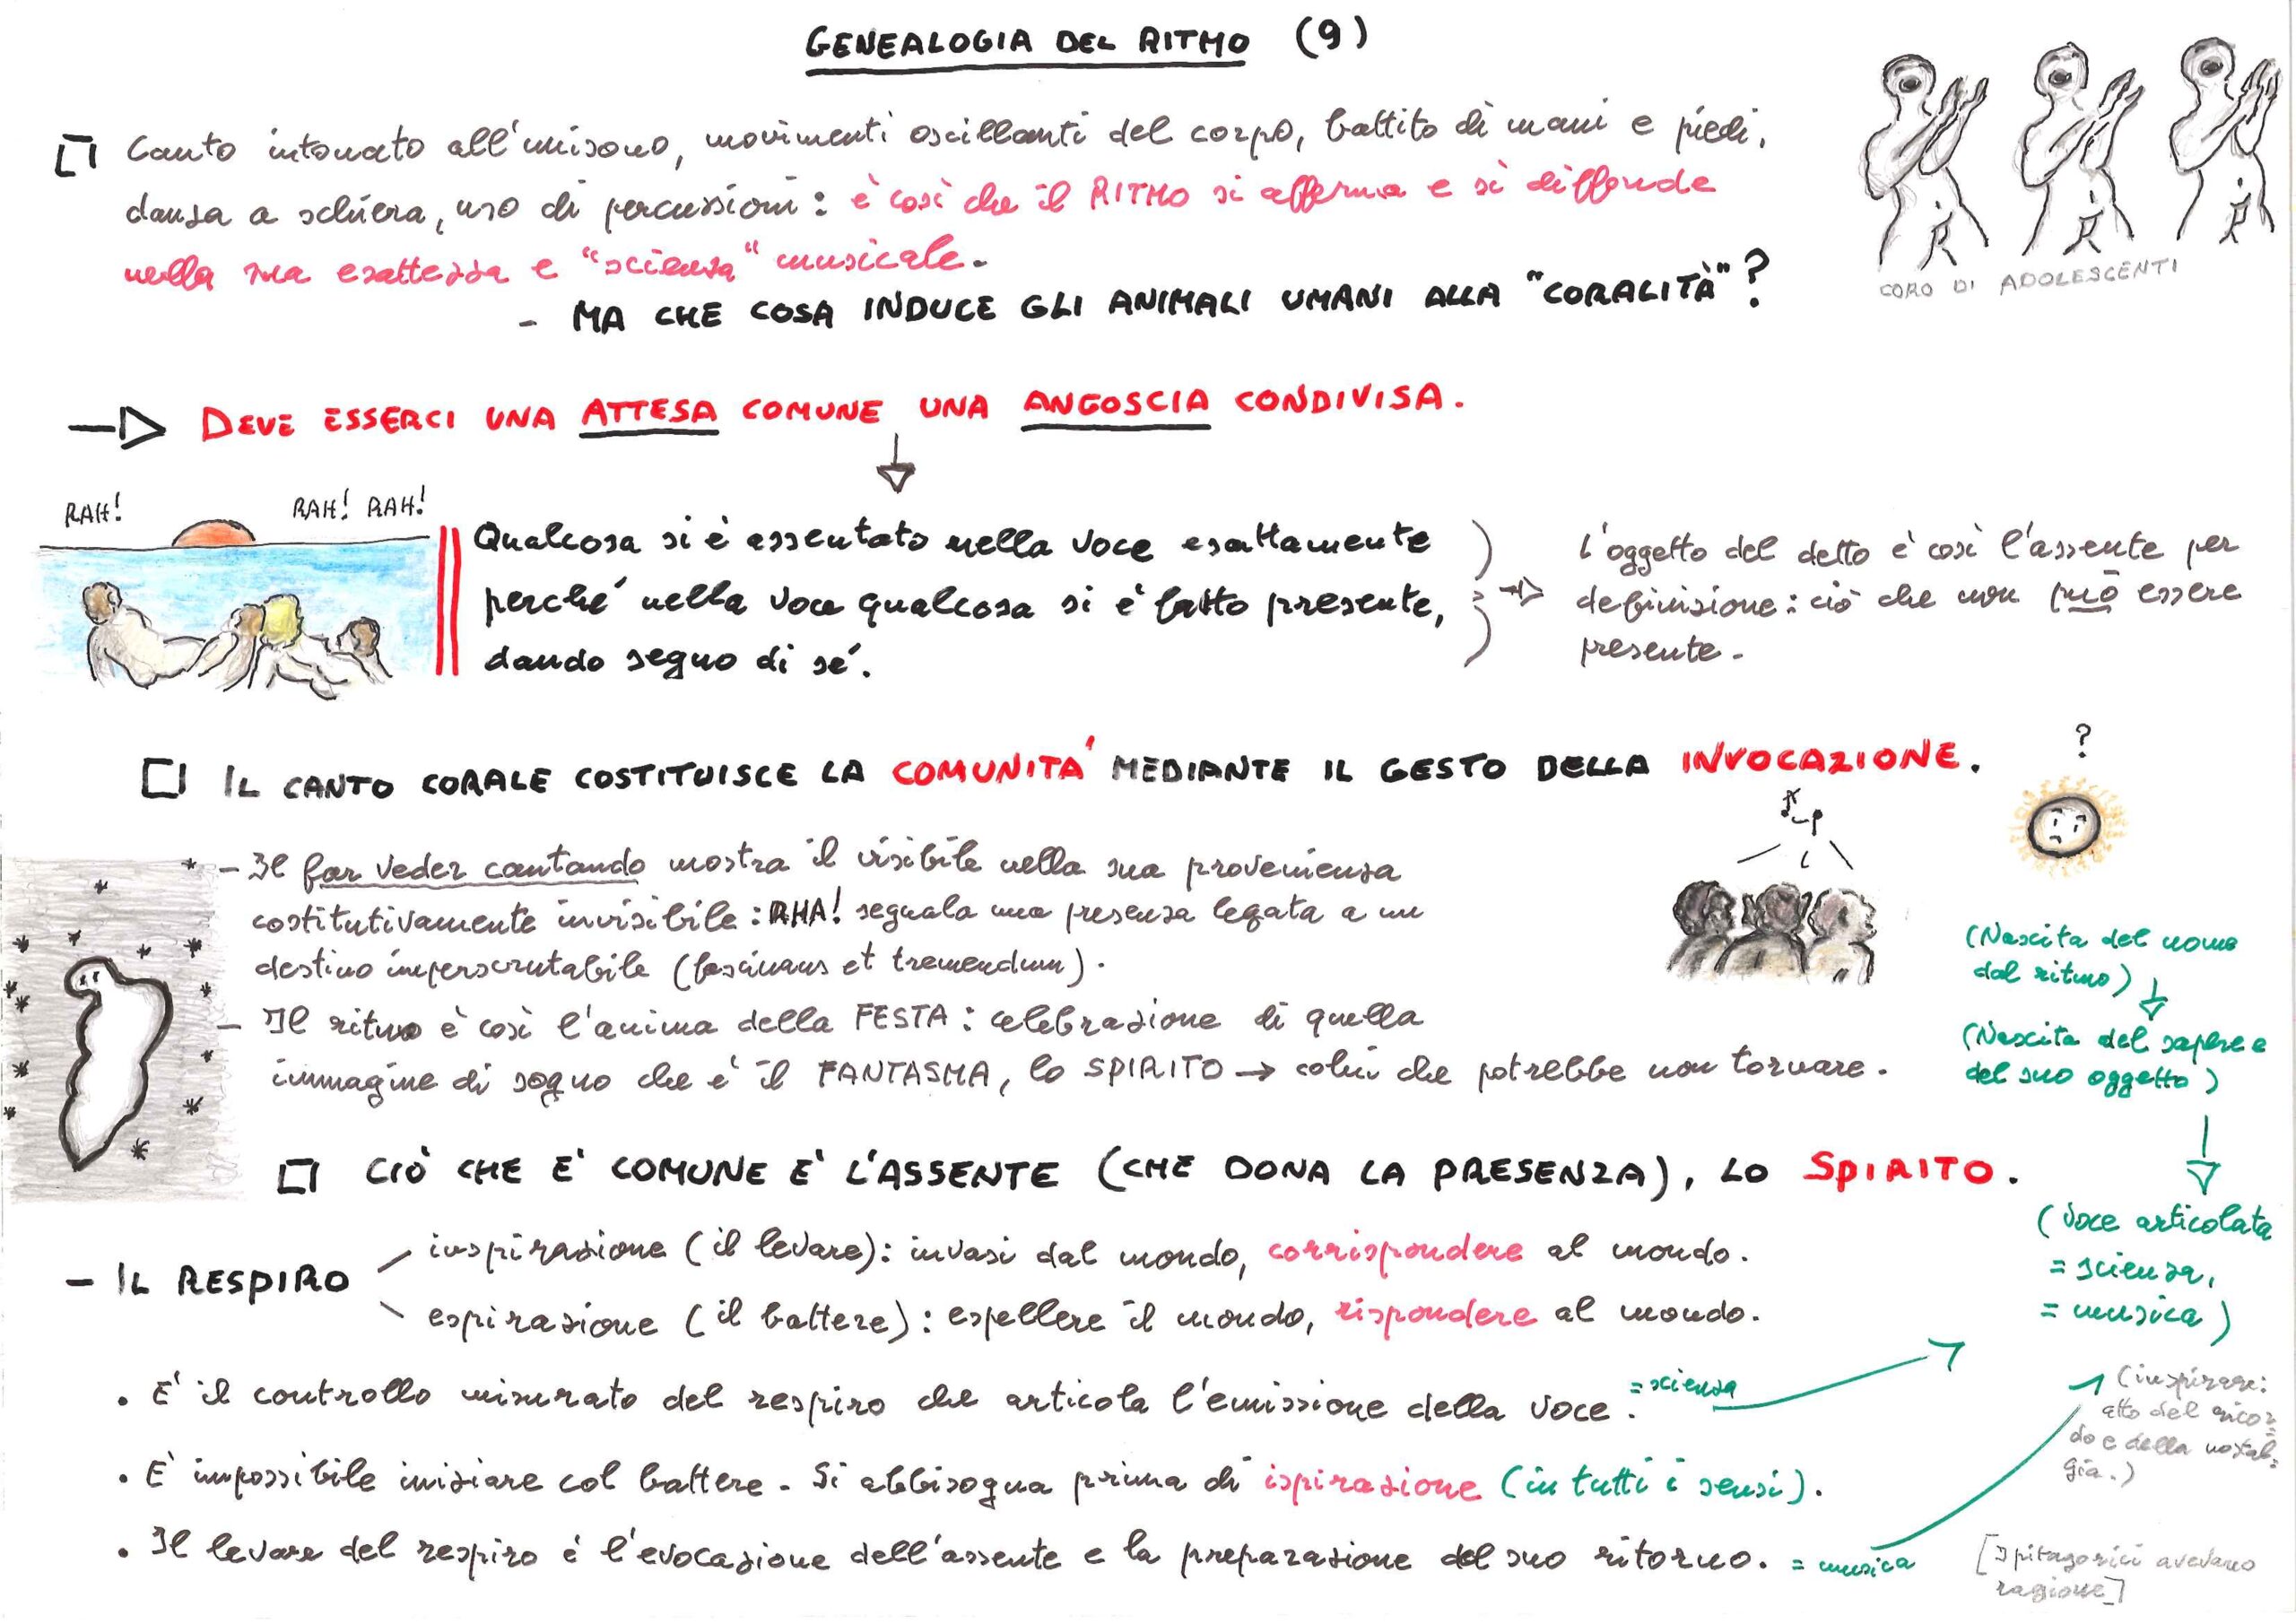 GENEALOGIA DEL RITMO (9)
Canto intonato all'unisono, movimenti oscillanti del corpo, battito di mani e piedi,
danza a schiera, uso di percussioni: è così che il RITMO si afferma e si diffonde
nella sua esattezza e "scienza" musicale.
CORO DI ADOLESCENTI
- MA CHE COSA INDUCE GLI ANIMALI UMANI ALLA "CORALITÀ"?
DEVE ESSERCI UNA ATTESA COMUNE UNA ANGOSCIA CONDIVISA.
RAH! RAH! RAH!
Qualcosa si è assentato nella voce esattamente
perché nella voce qualcosa si è fatto presente,
dando segno di sé.
L'oggetto del detto è così l'assente per
definizione: ciò che non può essere
presente.
IL CANTO CORALE COSTITUISCE LA COMUNITA' MEDIANTE IL GESTO DELLA INVOCAZIONE.
?
- Il far veder cantando mostra il visibile nella sua provenienza
costitutivamente invisibile: RHA! segnala una presenza legata a un
destino imperscrutabile (fascinans et tremendum).
- Il ritmo è così l'anima della FESTA: celebrazione di quella
immagine di sogno che è il FANTASMA, lo SPIRITO → colui che potrebbe non tornare.
(Nascita del nome
dal ritmo)
(Nascita del sapere e
del suo oggetto)
CIÒ CHE E' COMUNE E' L'ASSENTE (CHE DONA LA PRESENZA), LO SPIRITO.
(Voce articolata
= scienza,
= musica)
- IL RESPIRO
inspirazione (il levare): invasi dal mondo, corrispondere al mondo.
espirazione (il battere): espellere il mondo, rispondere al mondo.
• E' il controllo misurato del respiro che articola l'emissione della voce. = scienza
(inspirare:
atto del ricor=
do e della nostal=
gia.)
• E' impossibile iniziare col battere - Si abbisogna prima di ispirazione (in tutti i sensi).
• Il levare del respiro è l'evocazione dell'assente e la preparazione del suo ritorno. = musica
[I pitagorici avevano
ragione]